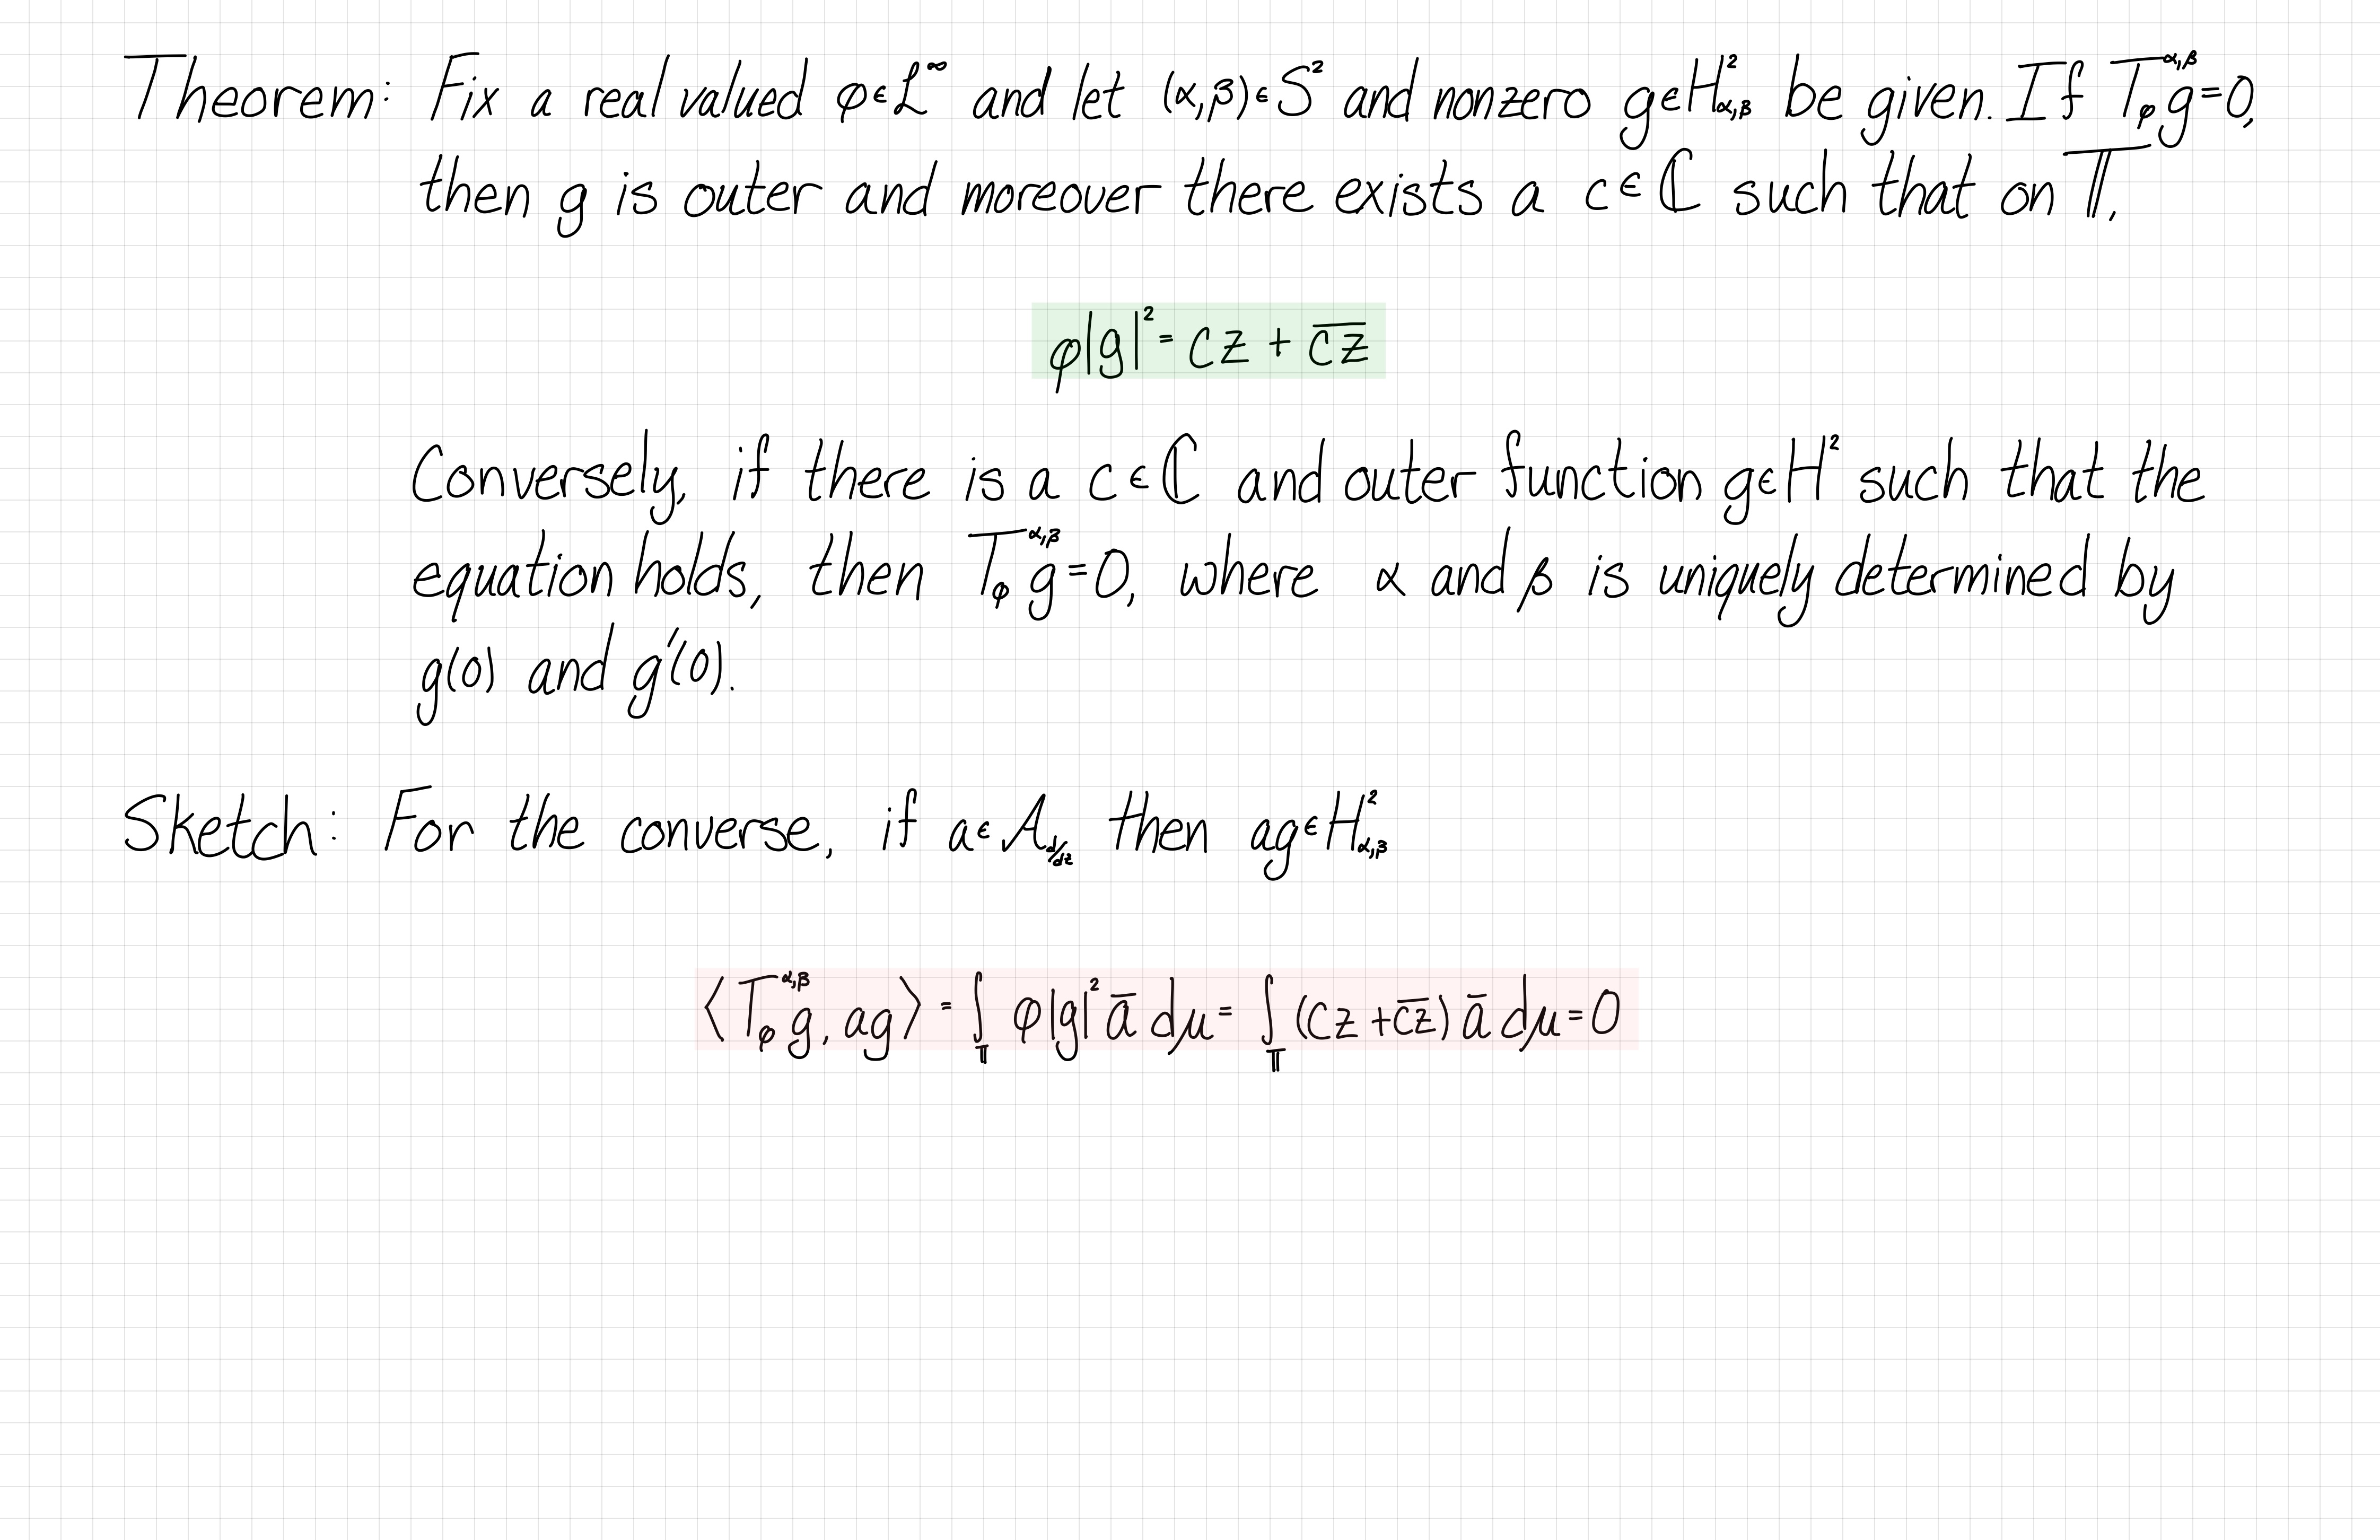 Theorem: Fix a real valued φ∈L^∞ and let (α,β)∈S² and nonzero g∈H²_{α,β} be given. If T_φ^{α,β} g=0,
then g is outer and moreover there exists a c∈ℂ such that on 𝕋,
φ|g|² = cz + \overline{cz}
Conversely, if there is a c∈ℂ and outer function g∈H² such that the
equation holds, then T_φ^{α,β} g=0, where α and β is uniquely determined by
g(0) and g′(0).
Sketch: For the converse, if a∈A_{d/dz} then ag∈H²_{α,β}
⟨T_φ^{α,β} g, ag⟩ = ∫_𝕋 φ|g|² \overline{a} dμ = ∫_𝕋 (cz + \overline{cz}) \overline{a} dμ = 0